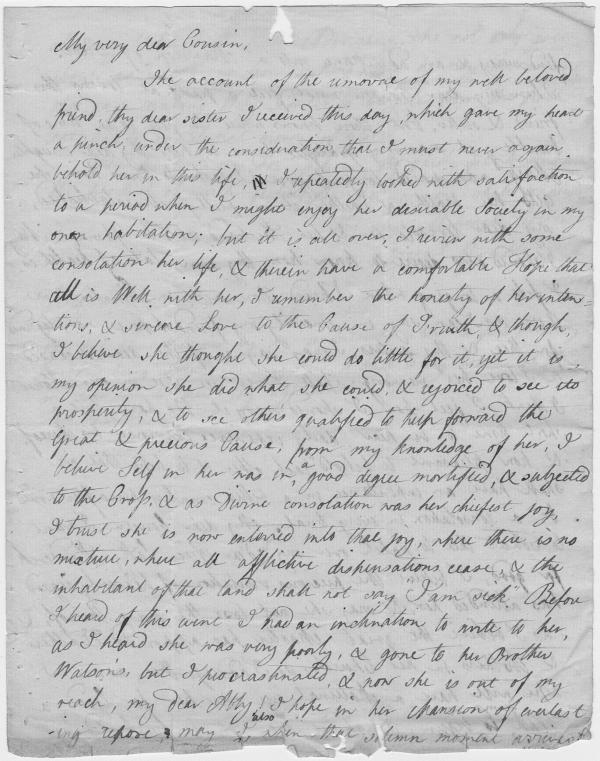 My very dear Cousin,
The account of the removal of my well beloved
friend, thy dear sister I received this day, which gave my heart
a pinch, under the consideration that I must never again
behold her in this life, I repeatedly looked with satisfaction
to a period when I might enjoy her desirable Society in my
own habitation; but it is all over, I review with some
consolation her life, & therein have a comfortable Hope that
all is Well with her, I remember the honesty of her inten=
tions, & sincere Love to the Cause of Truth, & though,
I believe she thought she could do little for it, yet it is
my opinion she did what she could, & rejoiced to see its
prosperity, & to see others qualified to help forward the
Great & precious Cause, from my knowledge of her, I
believe Self in her was in a good degree mortified, & subjected
to the Cross, & as Divine consolation was her chiefest joy,
I trust she is now entered into that joy, where there is no
mixture, where all afflictive dispensations cease, & the
inhabitant of that land shall not say "I am sick" Before
I heard of this event I had an inclination to write to her,
as I heard she was very poorly, & gone to her Brother
Watson's, but I procrastinated, & now she is out of my
reach, my dear Abby! I hope in her mansion of everlast
-ing repose, & may I also when that solemn moment arrives